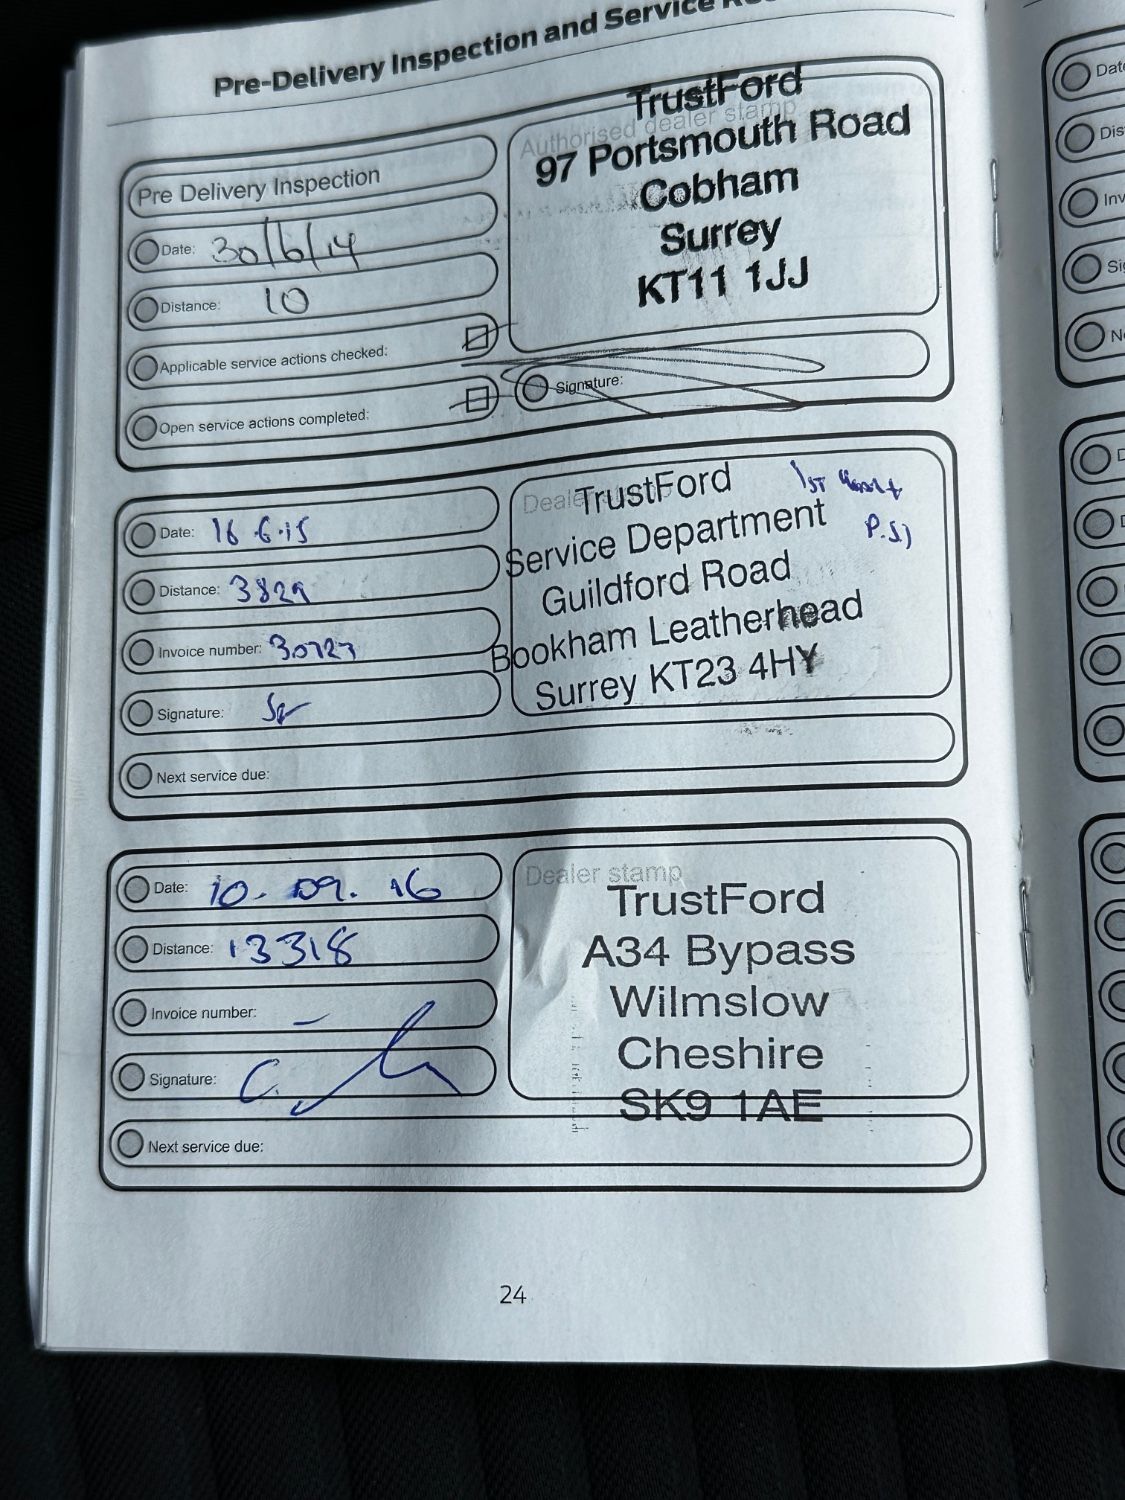 Pre-Delivery Inspection and Service
Pre Delivery Inspection
Date: 30/6/14
Distance: 10
Applicable service actions checked:
Open service actions completed:
Authorised dealer stamp
TrustFord
97 Portsmouth Road
Cobham
Surrey
KT11 1JJ
Signature:
Date: 16.6.15
Distance: 3829
Invoice number: 30723
Signature:
Next service due:
TrustFord
Service Department
Guildford Road
Bookham Leatherhead
Surrey KT23 4HY
1ST
Date: 10.09.16
Distance: 13318
Invoice number: –
Signature:
Next service due:
Dealer stamp
TrustFord
A34 Bypass
Wilmslow
Cheshire
SK9 1AE
24